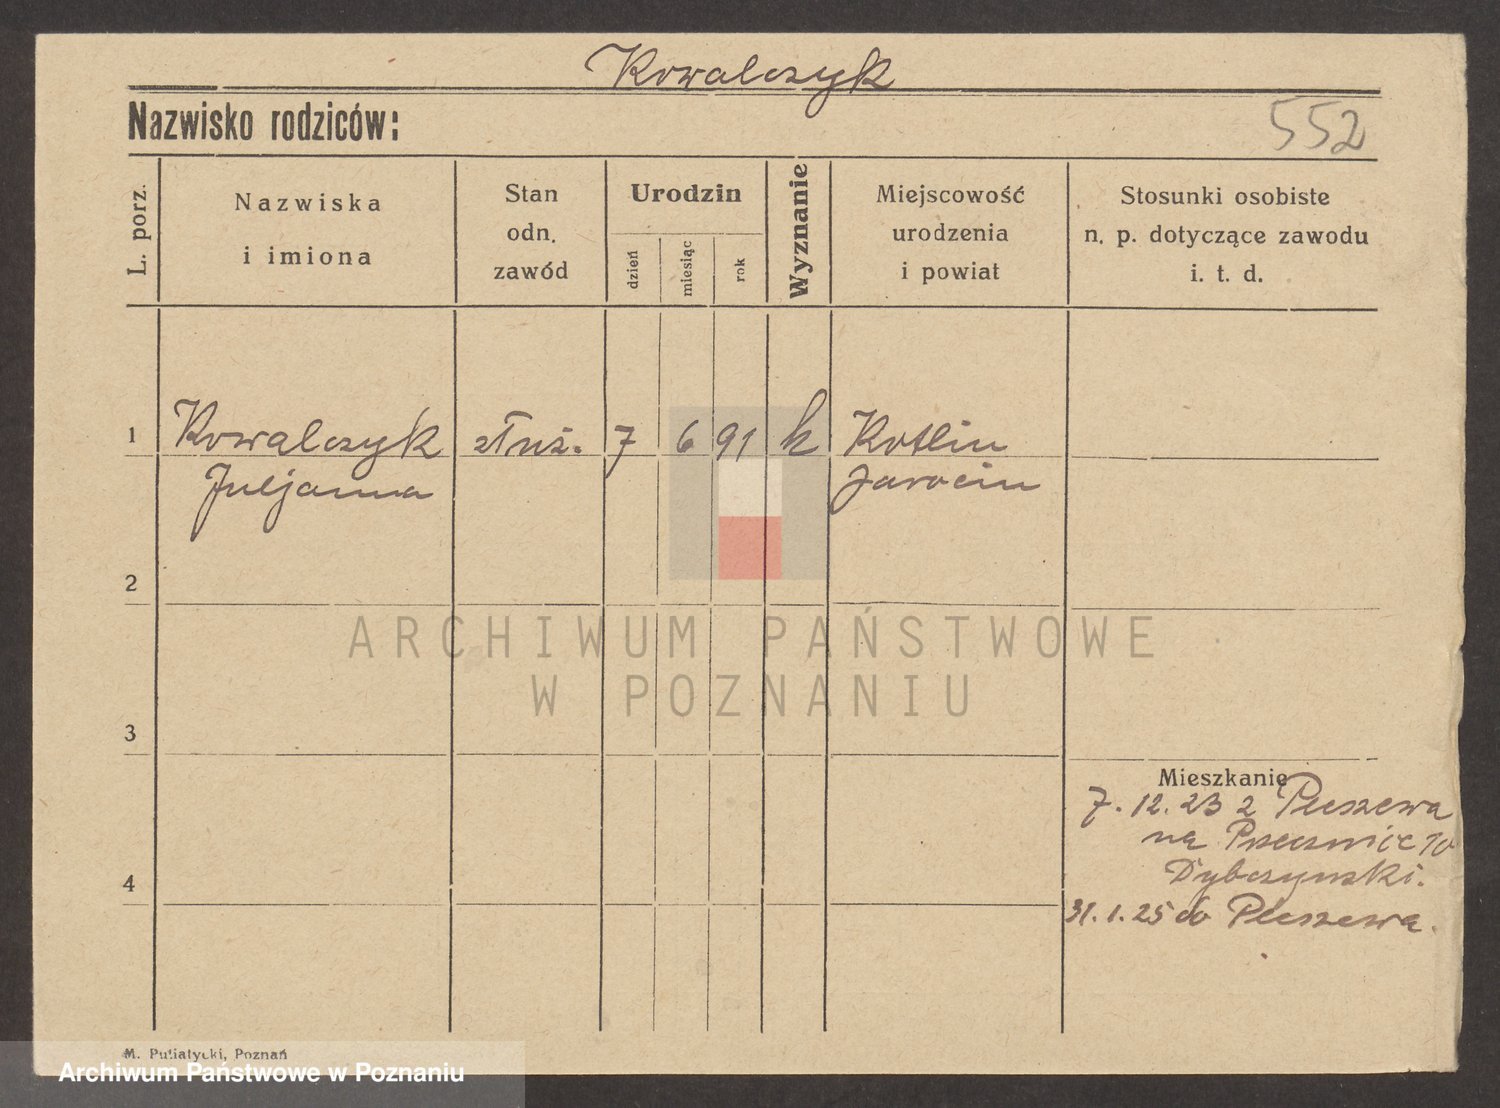 Kowalczyk
Nazwisko rodziców:
552
L. porz.
Nazwiska
i imiona
Stan
odn.
zawód
Urodzin
dzień
miesiąc
rok
Wyznanie
Miejscowość
urodzenia
i powiat
Stosunki osobiste
n. p. dotyczące zawodu
i. t. d.
1
Kowalczyk służ. 7 6 91 k Kotlin
Juljanna Jarocin
2
ARCHIWUM PAŃSTWOWE
W POZNANIU
3
Mieszkanie
7. 12. 23 z Pleszewa
na 10
Dybczyński.
4
31. 1. 25 do Pleszewa.
M. Putiatycki, Poznań
Archiwum Państwowe w Poznaniu